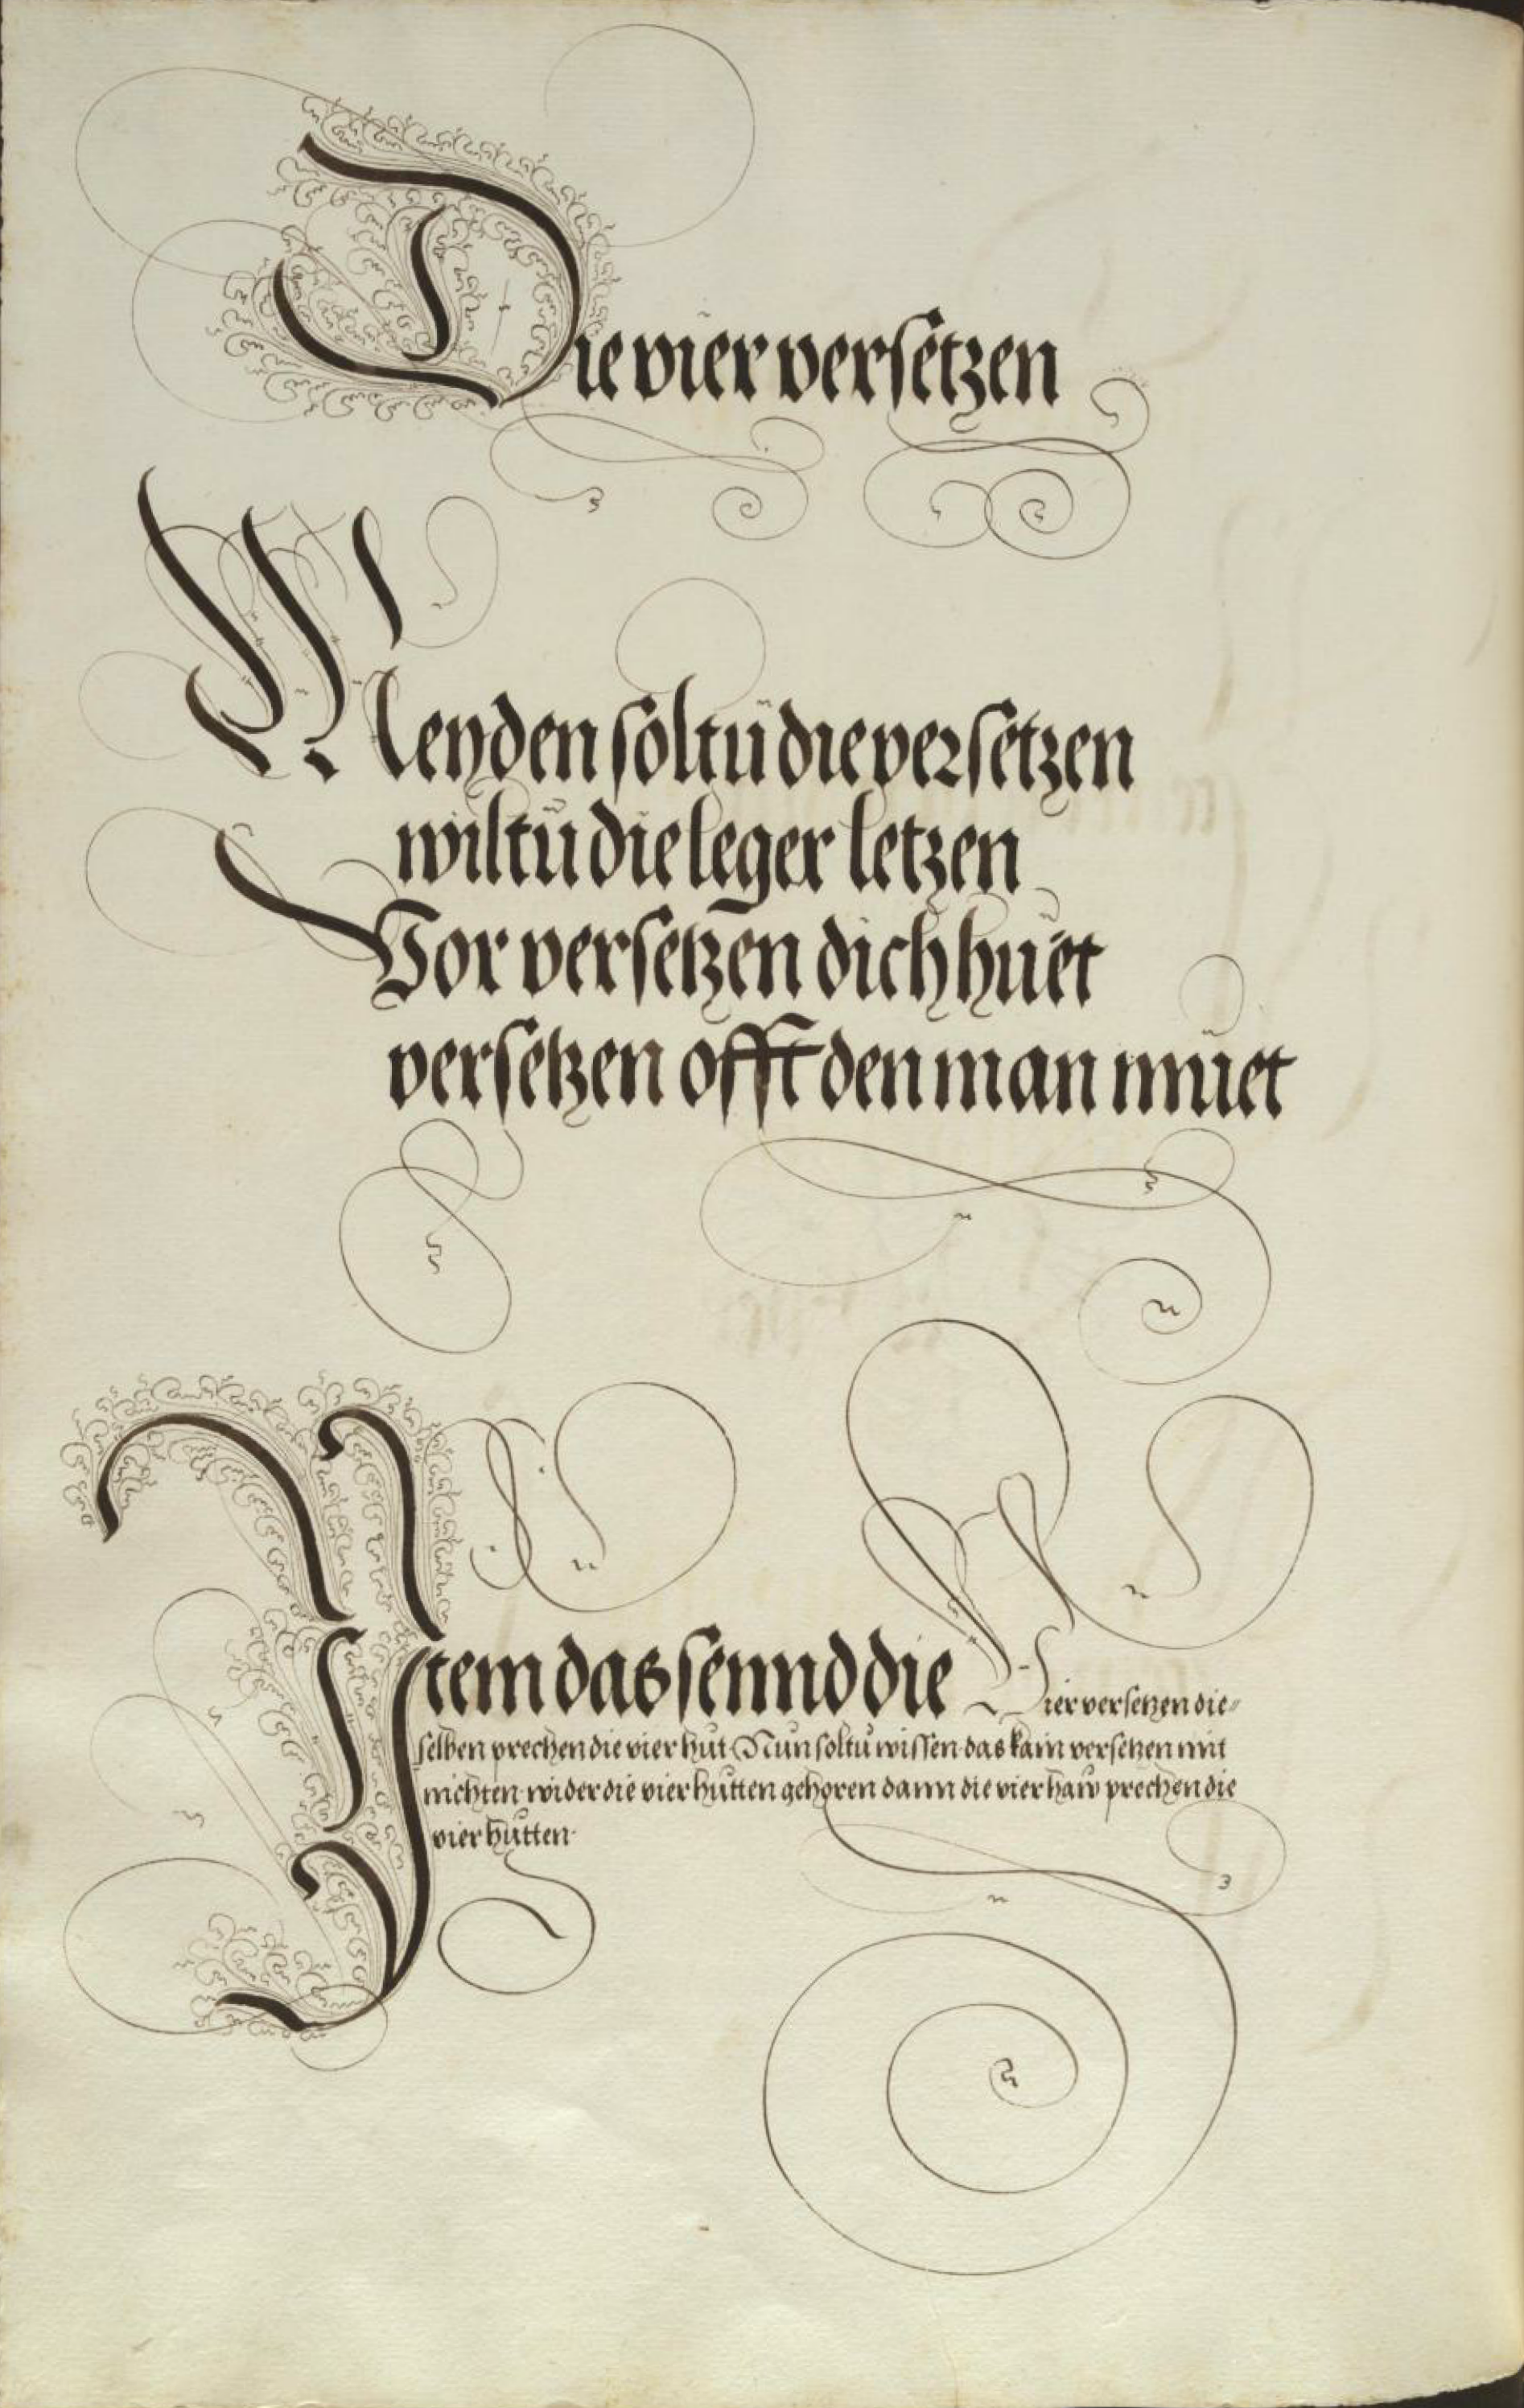 Die vier versetzen
Meyden soltu die versetzen
wiltu die leger letzen
Vor versetzen dich huet
versetzen offt den man muet
Item das sennd die Vier versetzen die-
selben prechen die vier hut Nun soltu wissen das kain versetzen mit
nichten wider die vier hutten gehoren dann die vier haw prechen die
vier hutten